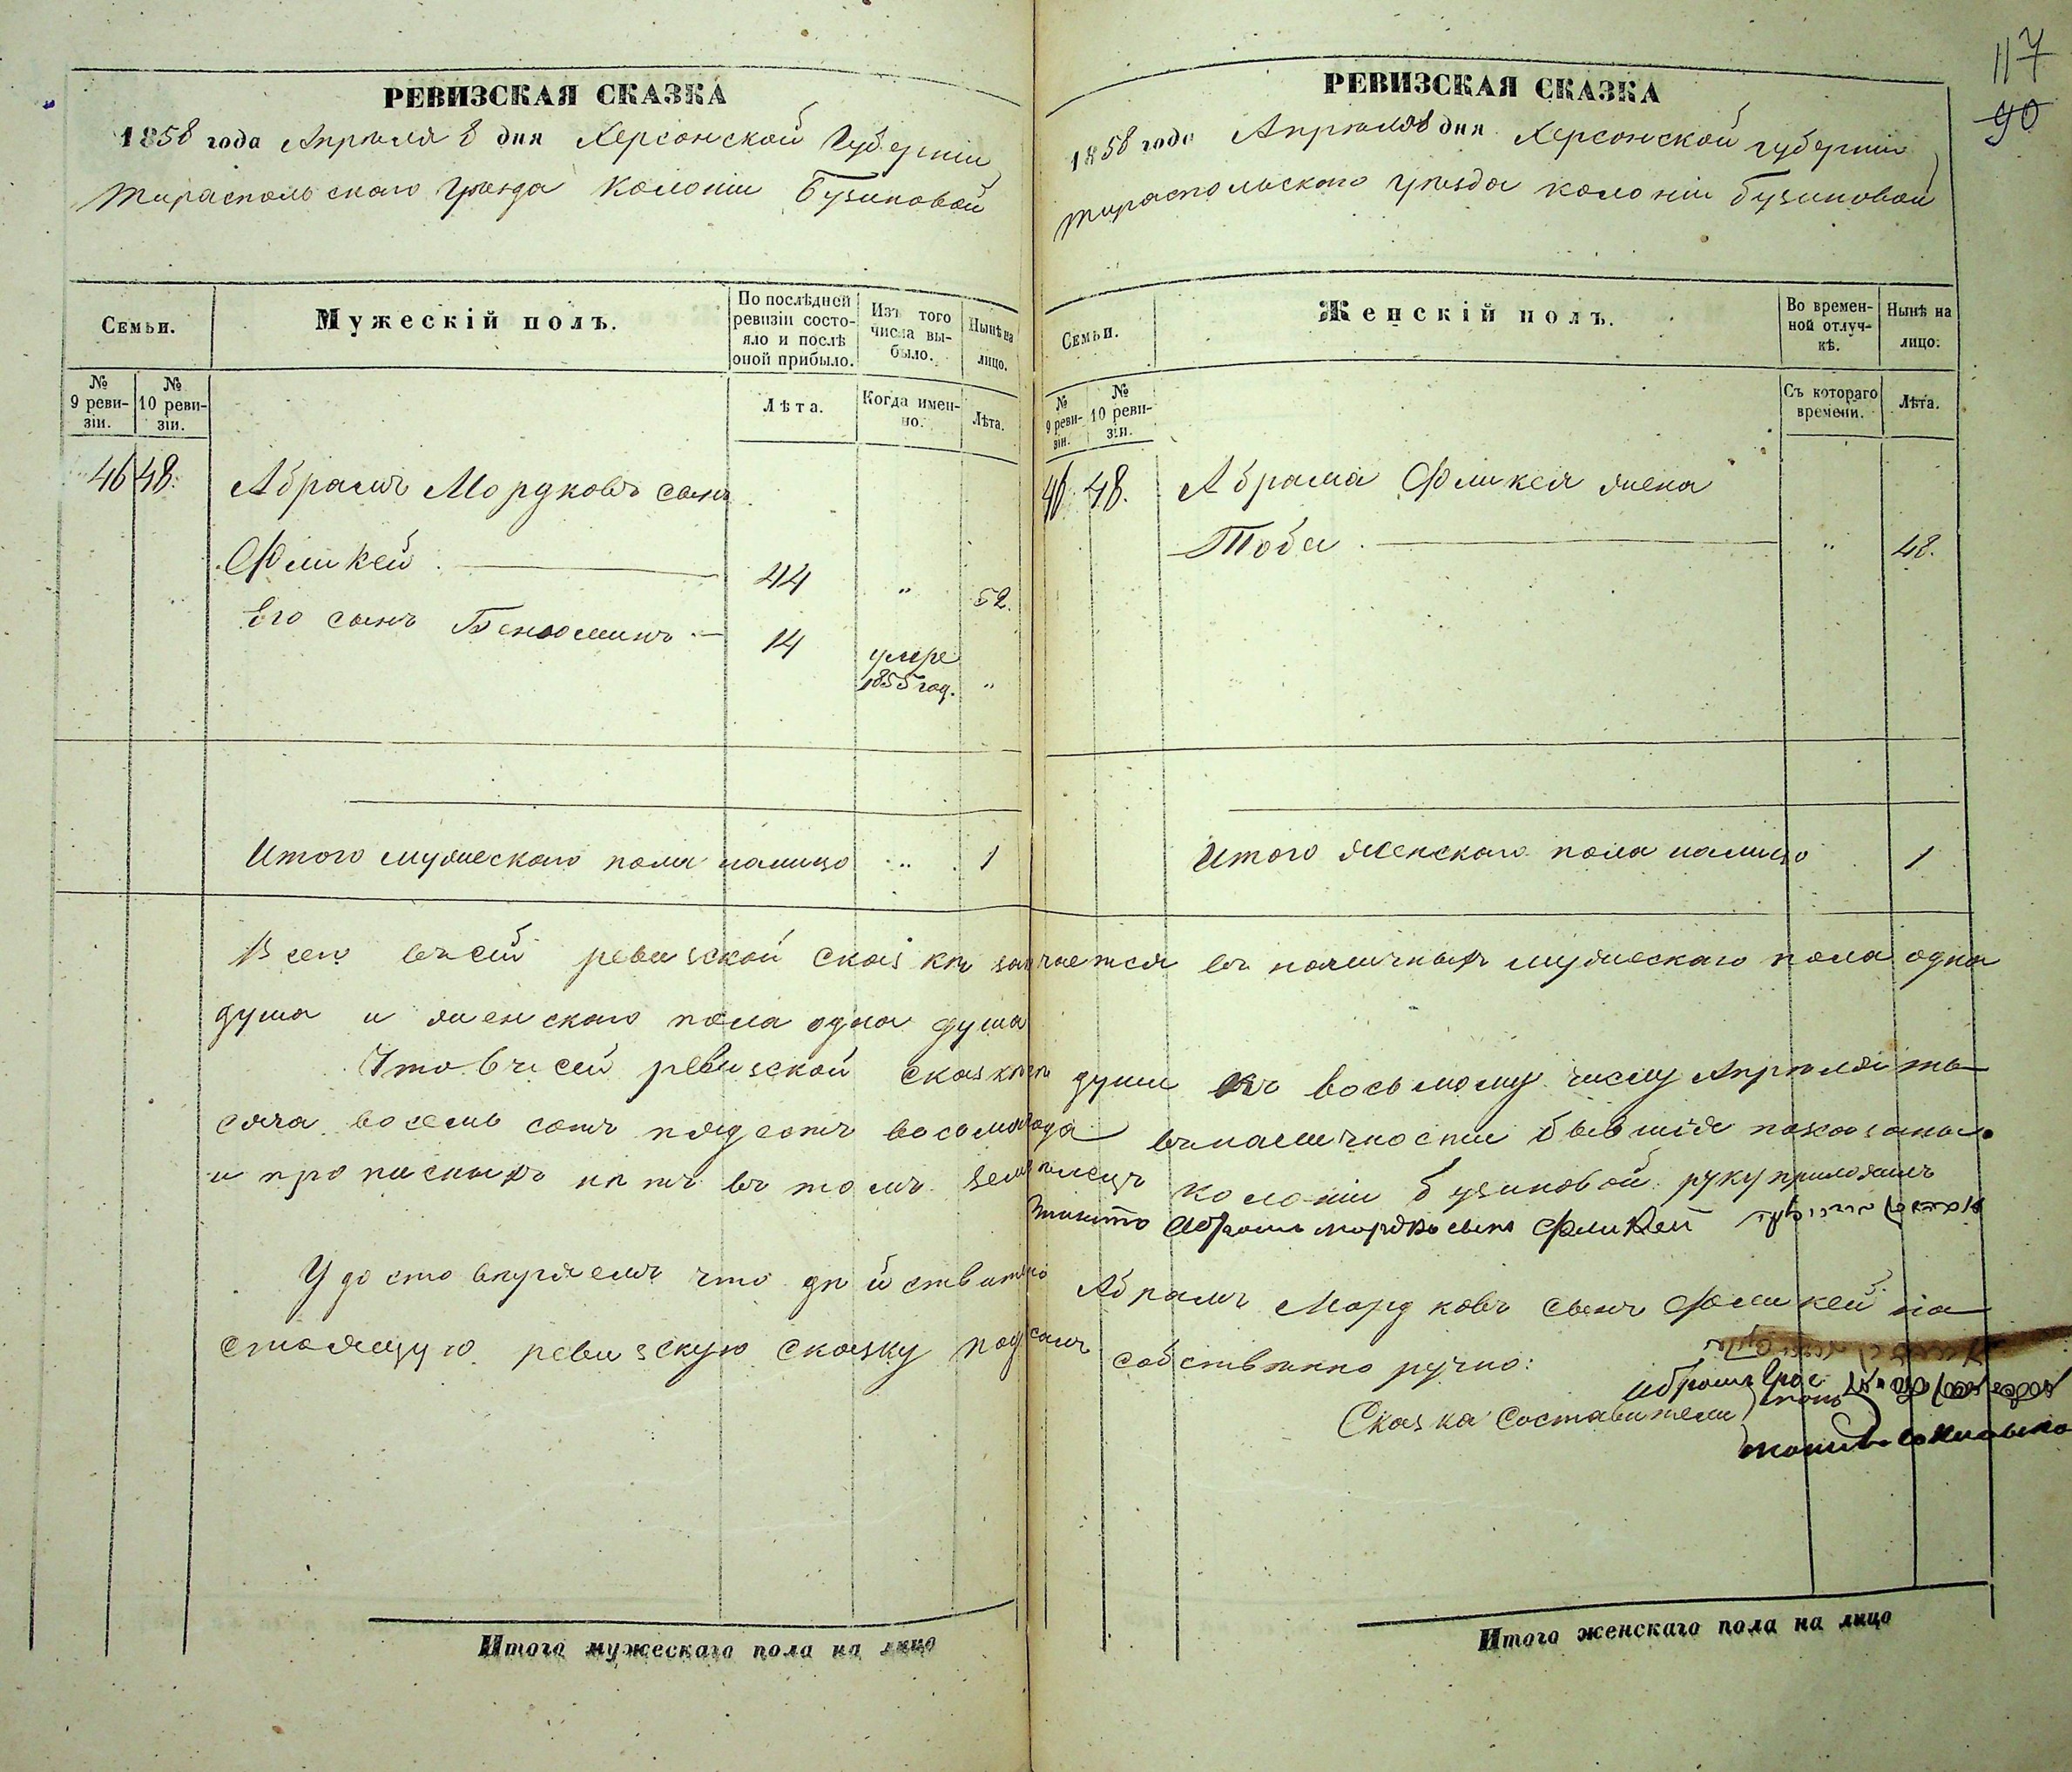 117
90
РЕВИЗСКАЯ СКАЗКА
1858 года Апрѣля 8 дня Херсонской Губерніи
Тираспольскаго Уѣзда Колоніи Бузиновой
Семьи.
Мужескій полъ.
По послѣдней ревизіи состояло и послѣ оной прибыло.
Изъ того числа выбыло.
Нынѣ на лицо.
№ 9 ревизіи.
№ 10 ревизіи.
Лѣта.
Когда именно.
Лѣта.
46 48. Абрамъ Мордковъ сынъ
Фликей 44 " 52.
Его сынъ Беньоминъ 14 умре
1855 год. "
Итого мужескаго пола налицо " 1
РЕВИЗСКАЯ СКАЗКА
1858 года Апрѣля 8 дня Херсонской губерніи
Тираспольскаго уѣзда колоніи Бузиновой
Семьи.
Женскій полъ.
Во временной отлучкѣ.
Нынѣ на лицо.
№ 9 ревизіи.
№ 10 ревизіи.
Съ котораго времени.
Лѣта.
46 48. Абрама Фликея жена
Тоба " 48.
Итого женскаго пола налицо 1
Всего въ сей ревизской сказкѣ значается въ наличныхъ мужескаго пола одна
душа и женскаго пола одна душа
Что въ сей ревизской сказкѣ души къ восьмому числу Апрѣля ты
сяча восемь сотъ пядесятъ восьмаго года въ наличности бывшія показаны
и прописныхъ нѣтъ въ томъ колоніи Бузиновой руку приложилъ
Абрамъ Мордко сынъ Фликей
Удостовѣряемъ что дѣйствительно Абрамъ Мордковъ сынъ Фликей на
стоящую ревизскую сказку подписалъ собственно ручно:
Сказка составители
Итого мужескаго пола на лицо
Итого женскаго пола на лицо